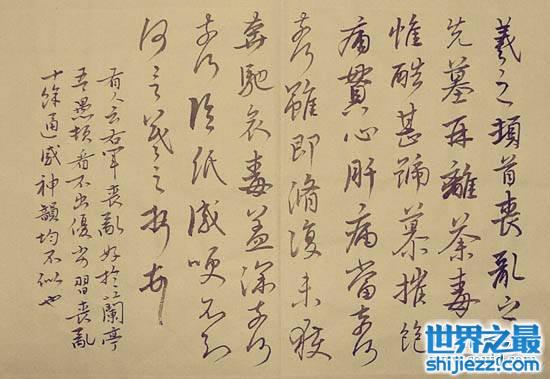 羲之頓首喪亂之
先墓再離荼毒
惟酷甚號慕摧絕
痛貫心肝痛當奈何
奈何雖即脩復未獲
奔馳哀毒益深奈何
奈何臨紙感哽不知
何言羲之頓首
有人云右軍喪亂好於蘭亭
吾愚頑看不出優劣習喪亂
十餘通感神韻均不似也
世界之最
shijiezz.com